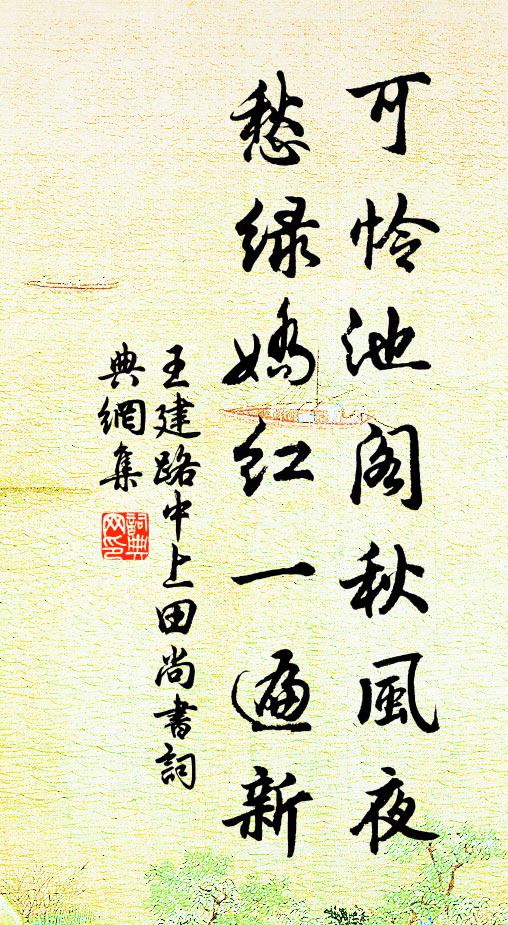 可怜池阁秋風夜
愁绿嬌红一遍新
王建路中上田尚書詞
典網集
詞典网印